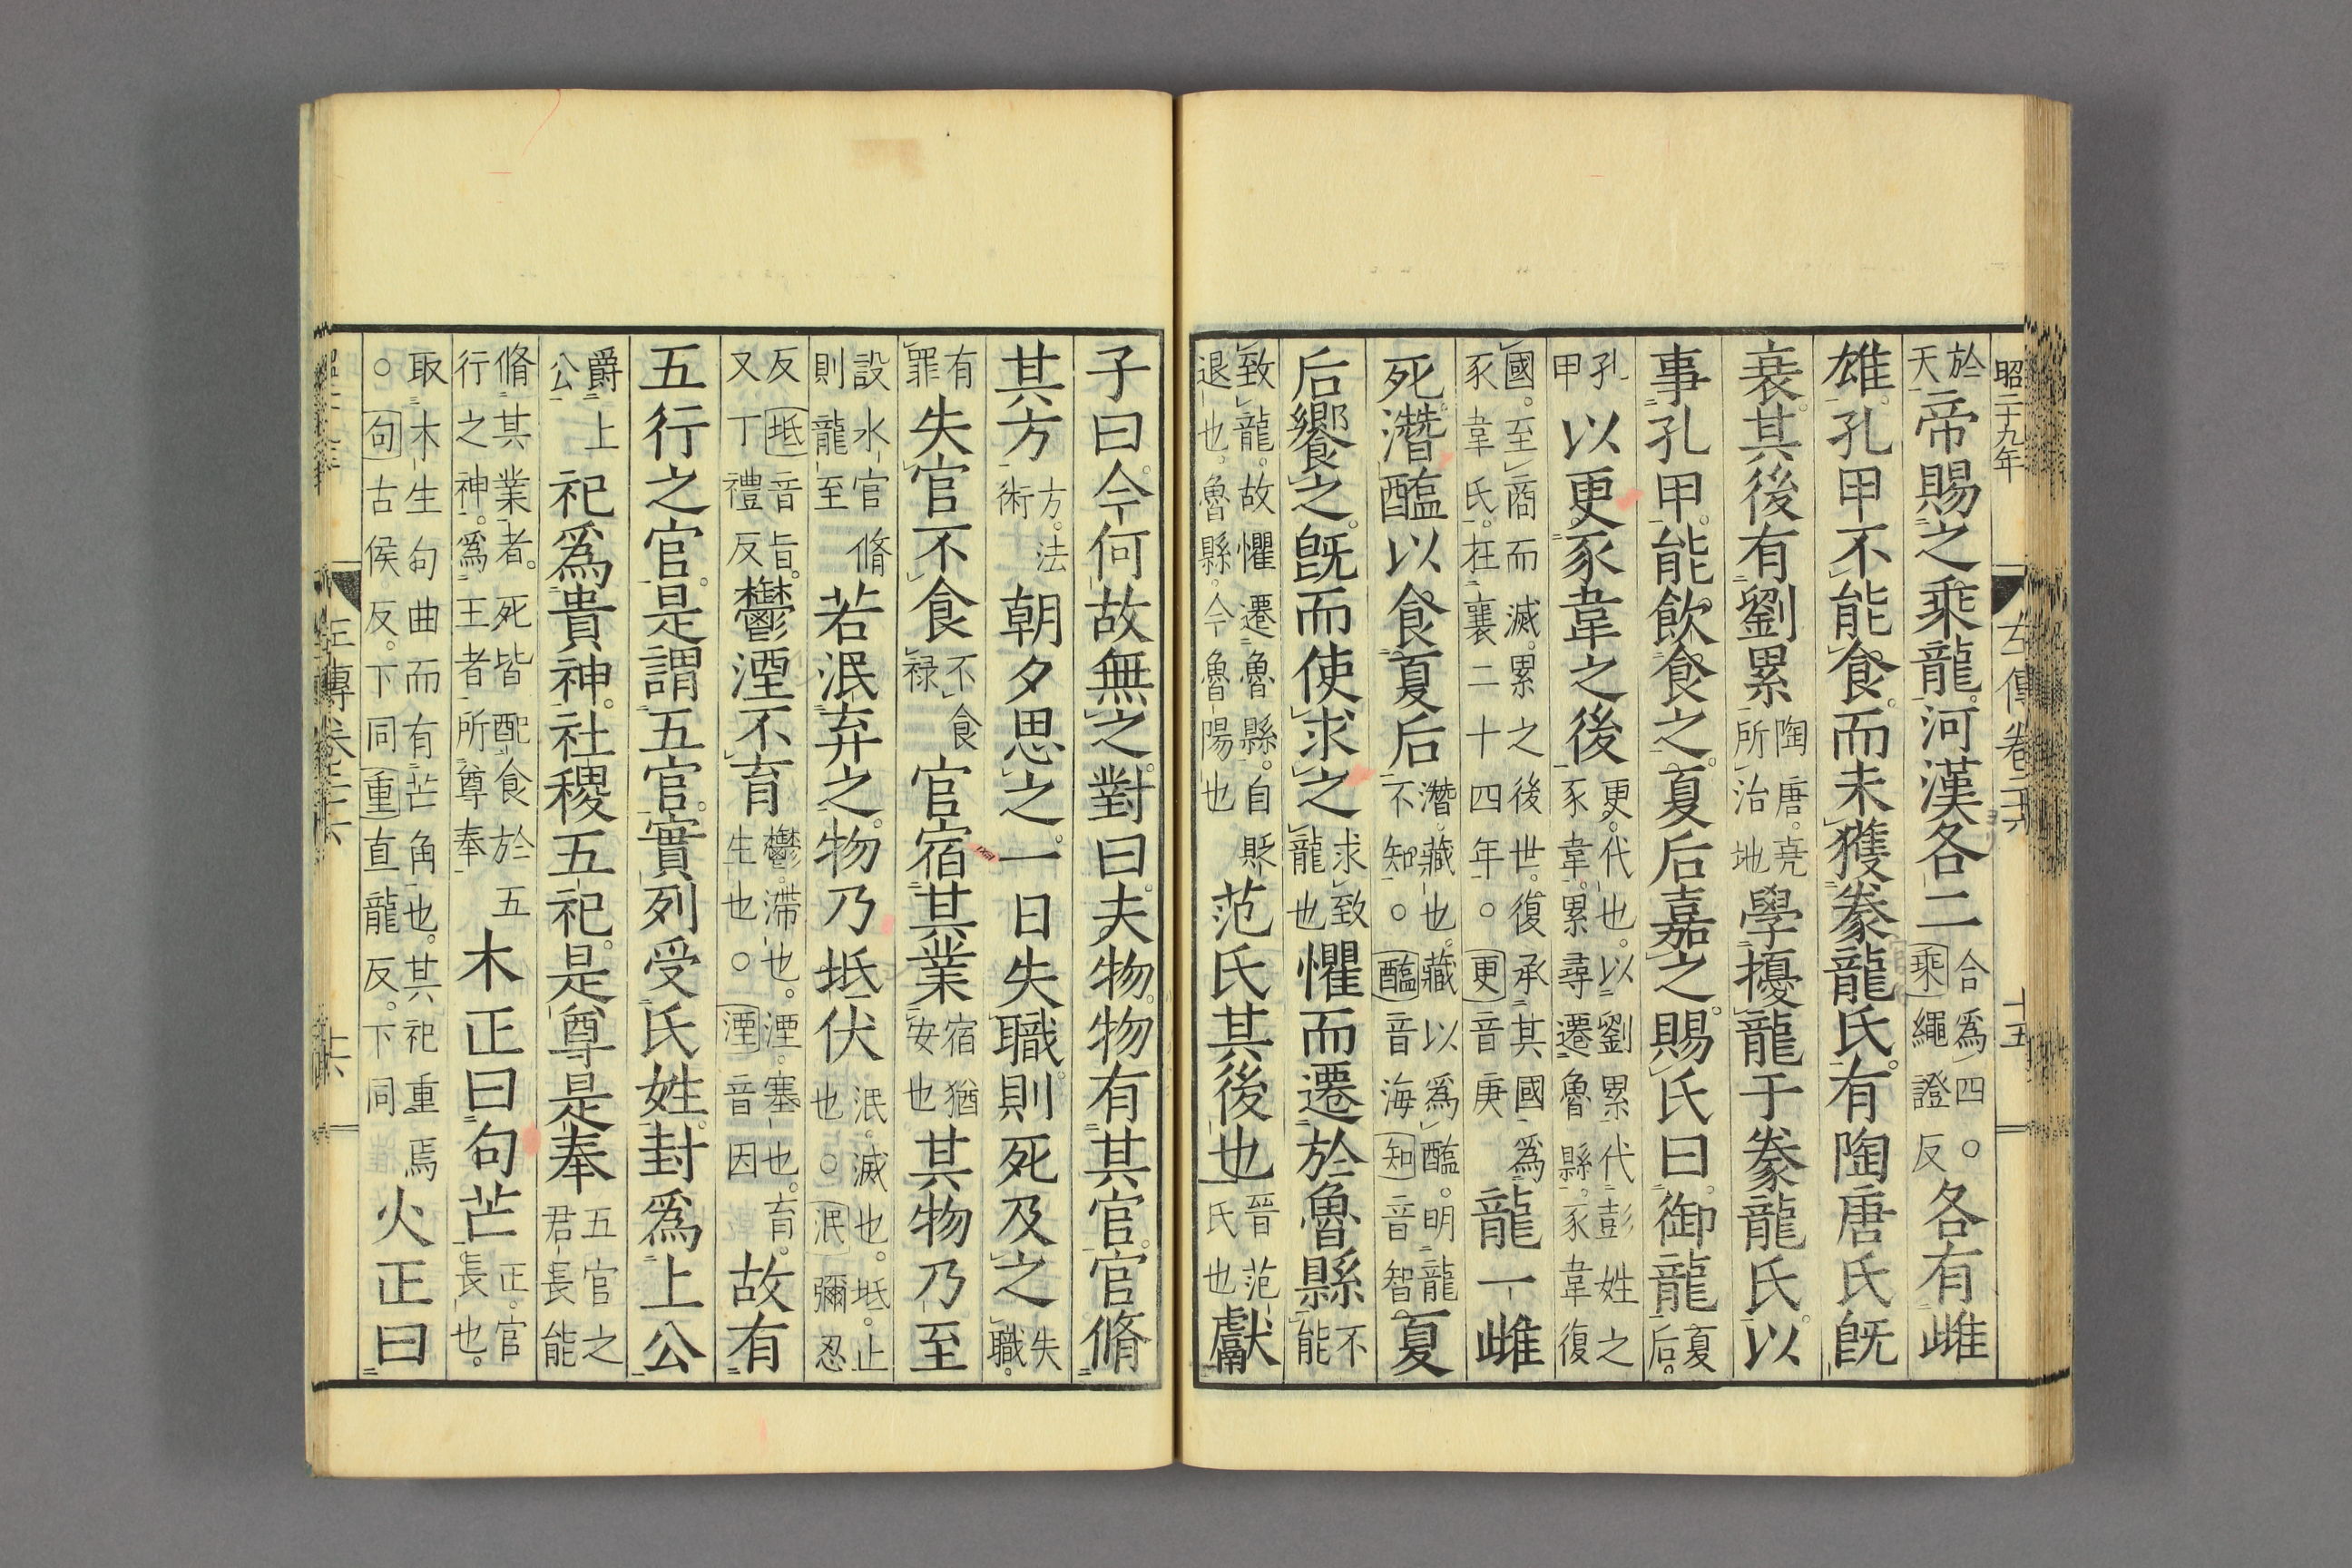 昭二十九年 左傳卷二十六 十五
於天帝賜之乘龍。河漢各二合爲四。○乘繩證反各有雌
雄。孔甲不能食。而未獲豢龍氏。有陶唐氏既
衰。其後有劉累陶唐。堯所治地學擾龍于豢龍氏。以
事孔甲。能飲食之。夏后嘉之。賜氏曰。御龍夏后。
孔甲以更豕韋之後更。代也。以劉累代彭姓之豕韋。累尋遷魯縣。豕韋復
國。至商而滅。累之後世。復承其國爲豕韋氏。在襄二十四年。○更音庚龍一雌
死。潛醢以食夏后潛。藏也。藏以爲醢。明龍不知。○醢音海知音智。夏
后饗之。既而使求之求致龍也懼而遷於魯縣不能
致龍。故懼遷魯縣。自貶退也。魯縣。今魯陽也范氏其後也晉范氏也獻
子曰。今何故無之。對曰。夫物。物有其官。官脩
其方方。法術朝夕思之。一日失職。則死及之失職。
有罪失官不食不食祿官宿其業宿猶安也其物乃至
設水官脩則龍至若泯弃之。物乃坻伏泯。滅也。坻。止也。○泯彌忍
反坻音旨。又丁禮反鬱湮不育鬱。滯也。湮。塞也。育。生也。○湮音因故有
五行之官。是謂五官。實列受氏姓。封爲上公
爵上公祀爲貴神。社稷五祀。是尊是奉五官之君長能
脩其業者。死皆配食於五行之神。爲王者所尊奉木正曰句芒正。官長也。
取木生句曲而有芒角也。其祀重焉。○句古侯反。下同重直龍反。下同火正曰